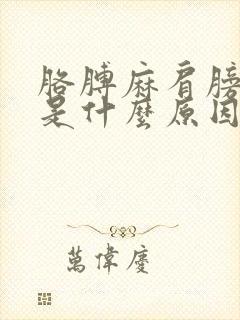 胳膊麻肩膀
是什麼原因
萬偉慶